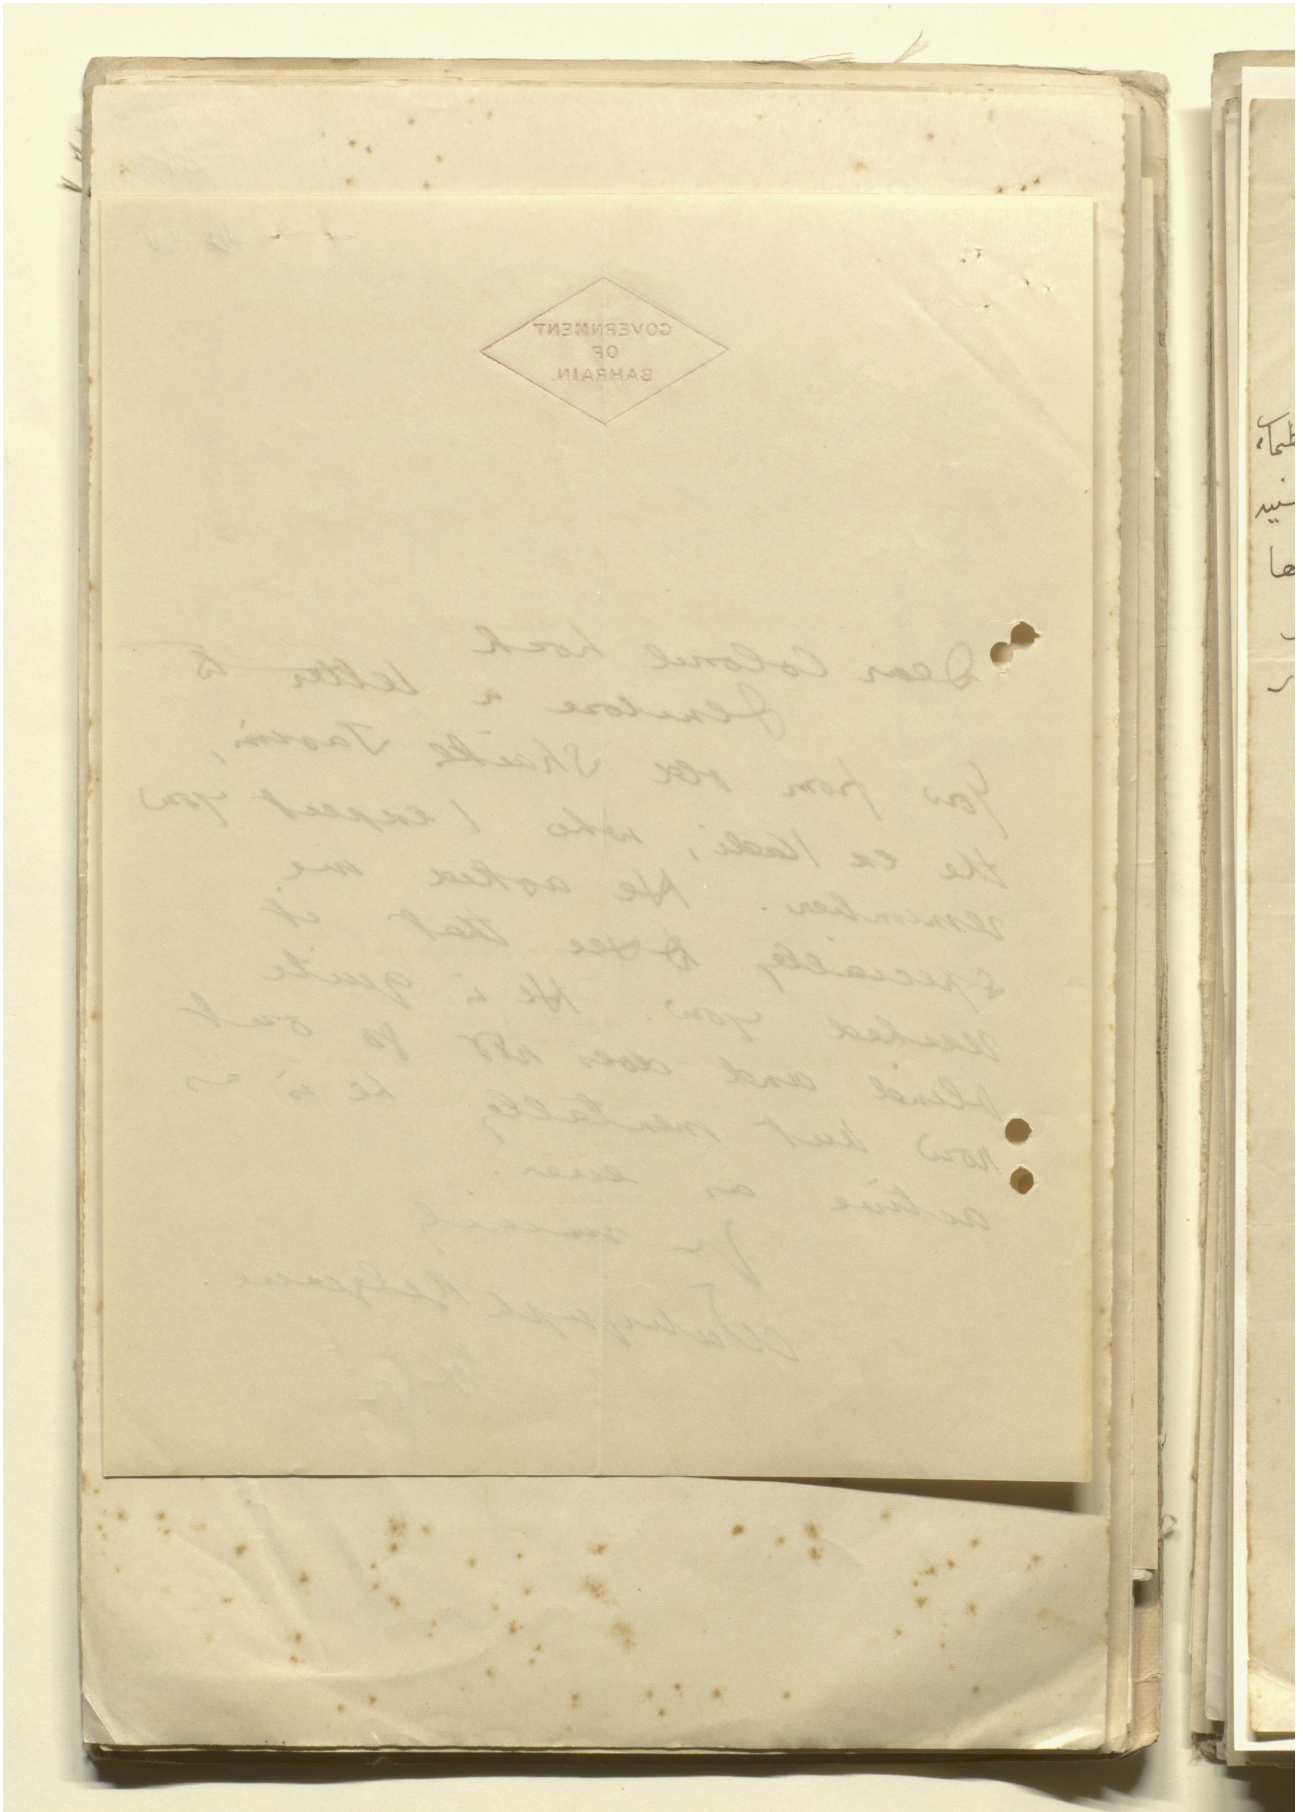 GOVERNMENT
OF
BAHRAIN.
Dear Colonel Loch
I enclose a letter to
you from old Shaikh Jasim,
the ex Kadi, who I expect you
remember. He asked me
specially to see that it
reached you. He is quite
blind and does not go out
now but mentally he is as
active as ever.
sincerely
Belgrave
ها